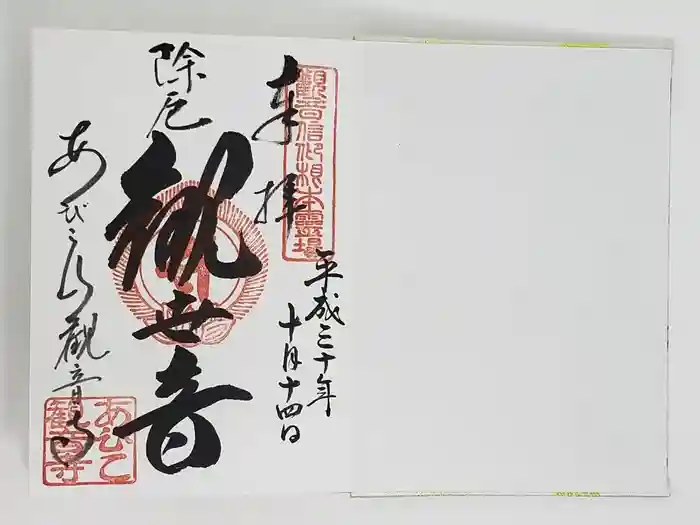 奉拝
觀音信仰根本靈場
平成三十年
十月十四日
除厄
観世音
あびこ山観音寺
あびこ
観音寺